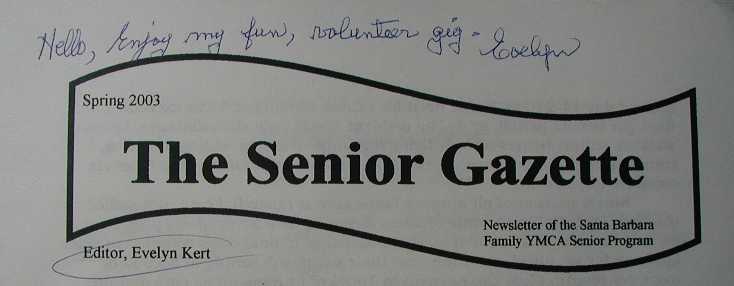 Hello, Enjoy my fun, volunteer gig - Evelyn
Spring 2003
The Senior Gazette
Newsletter of the Santa Barbara
Family YMCA Senior Program
Editor, Evelyn Kert